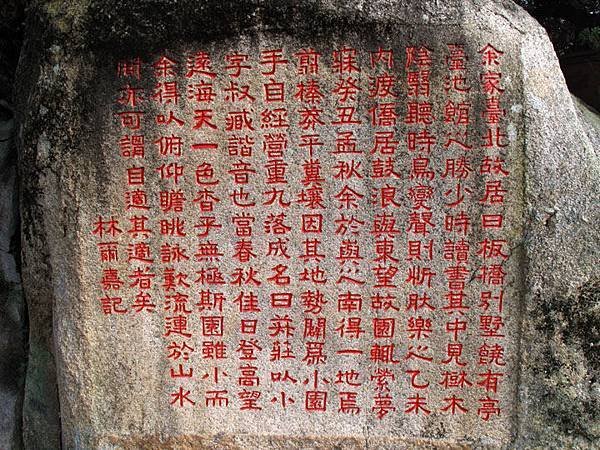 余家臺北故居曰板橋別墅饒有亭
臺池館之勝少時讀書其中見樹木
陰翳聽時鳥變聲則忻肰樂之乙未
內渡僑居鼓浪嶼東望故園輒縈夢
寐癸丑孟秋余於嶼之南得一地焉
翦榛莽平糞壤因其地勢闢爲小園
手自經營重九落成名曰尗莊以小
字叔臧諧音也當春秋佳日登高望
遠海天一色杳乎無極斯園雖小而
余得以俯仰瞻眺詠歎流連於山水
間亦可謂自適其適者矣
林爾嘉記